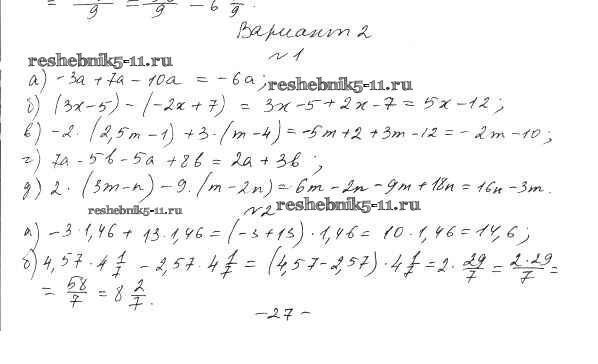 = —/9 = —/9 = 6 —/9.
Вариант 2
№1
reshebnik5-11.ru
а) -3a + 7a - 10a = -6a;
reshebnik5-11.ru
б) (3x-5) - (-2x+7) = 3x-5+2x-7 = 5x-12;
в) -2·(2,5m-1)+3·(m-4) = -5m+2+3m-12 = -2m-10;
г) 7a-5b-5a+8b = 2a+3b;
д) 2·(3m-n)-9·(m-2n) = 6m-2n-9m+18n = 16n-3m.
reshebnik5-11.ru
№2
reshebnik5-11.ru
а) -3·1,46 + 13·1,46 = (-3+13)·1,46 = 10·1,46 = 14,6;
б) 4,57·4 1/7 - 2,57·4 1/7 = (4,57-2,57)·4 1/7 = 2·29/7 = 2·29/7 =
= 58/7 = 8 2/7.
-27-